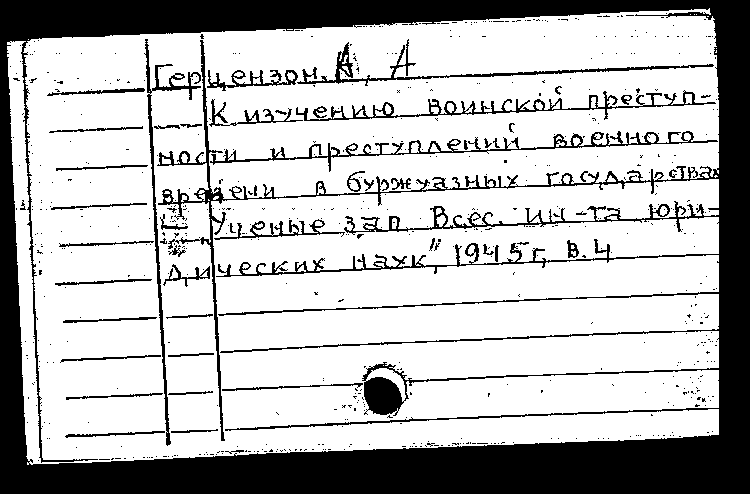 Герцензон. А, А
К изучению воинской преступ-
ности и преступлений военного
времени в буржуазных государствах
Ученые зап Всес. ин-та юри-
дических наук", 1945г, в.4